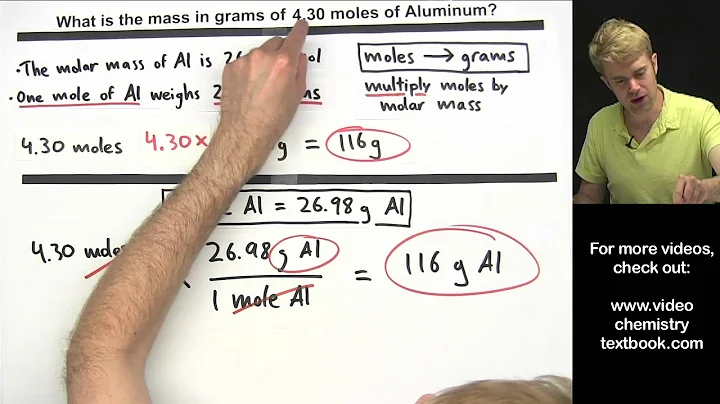 What is the mass in grams of 4.30 moles of Aluminum?
·The molar mass of Al is
·One mole of Al weighs
moles → grams
multiply moles by
molar mass
4.30 moles 4.30× g = 116g
Al = 26.98 g Al
4.30 26.98 g Al
1 mole Al
= 116 g Al
For more videos,
check out:
www.video
chemistry
textbook.com